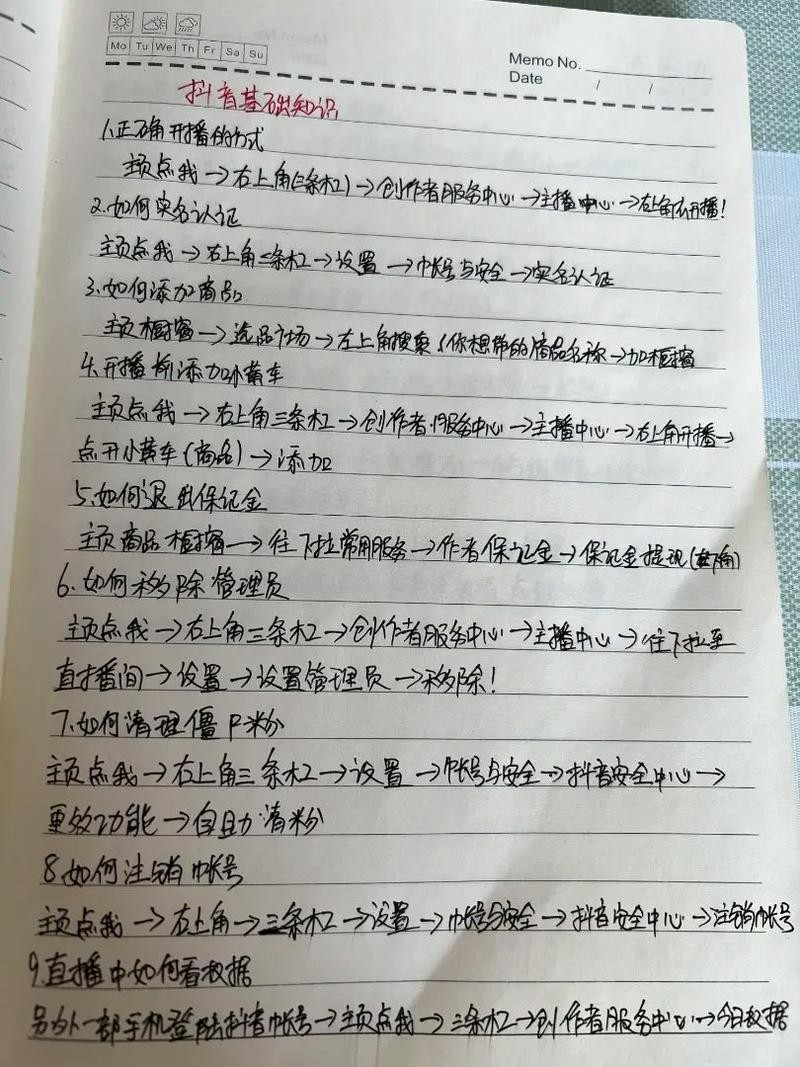 Mo Tu We Th Fr Sa Su
Memo No.
Date / /
抖音基础知识
1.正确开播的方式
主页点我→右上角(三条杠)→创作者服务中心→主播中心→右上角开播!
2.如何实名认证
主页点我→右上角三条杠→设置→帐号与安全→实名认证
3.如何添加商品
主页橱窗→选品广场→左上角搜索(你想带的商品名称→加橱窗
4.开播前添加小黄车
主页点我→右上角三条杠→创作者服务中心→主播中心→右上角开播→
点开小黄车(商品)→添加
5.如何退出保证金
主页商品橱窗→往下拉常用服务→作者保证金→保证金提现(右下角)
6.如何移除管理员
主页点我→右上角三条杠→创作者服务中心→主播中心→往下拉至
直播间→设置→设置管理员→移除!
7.如何清理僵尸粉
主页点我→右上角三条杠→设置→帐号与安全→抖音安全中心→
更多功能→自助清粉
8.如何注销帐号
主页点我→右上角→三条杠→设置→帐号与安全→抖音安全中心→注销帐号
9.直播中如何看数据
另外一部手机登陆抖音帐号→主页点我→三条杠→创作者服务中心→今日数据